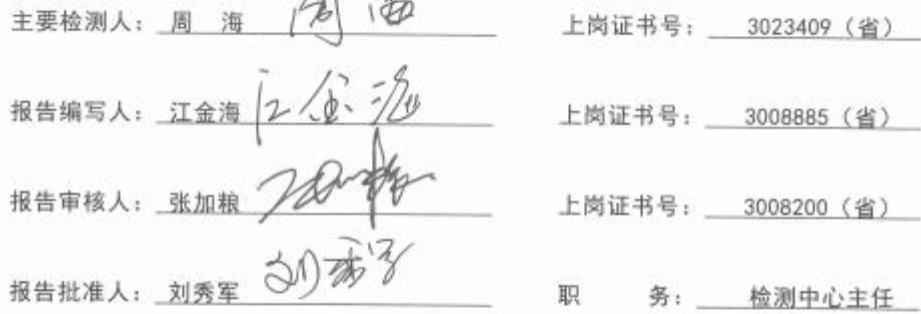 主要检测人： 周 海 周海 上岗证书号： 3023409（省）
报告编写人： 江金海 江金海 上岗证书号： 3008885（省）
报告审核人： 张加粮 上岗证书号： 3008200（省）
报告批准人： 刘秀军 刘秀军 职 务： 检测中心主任